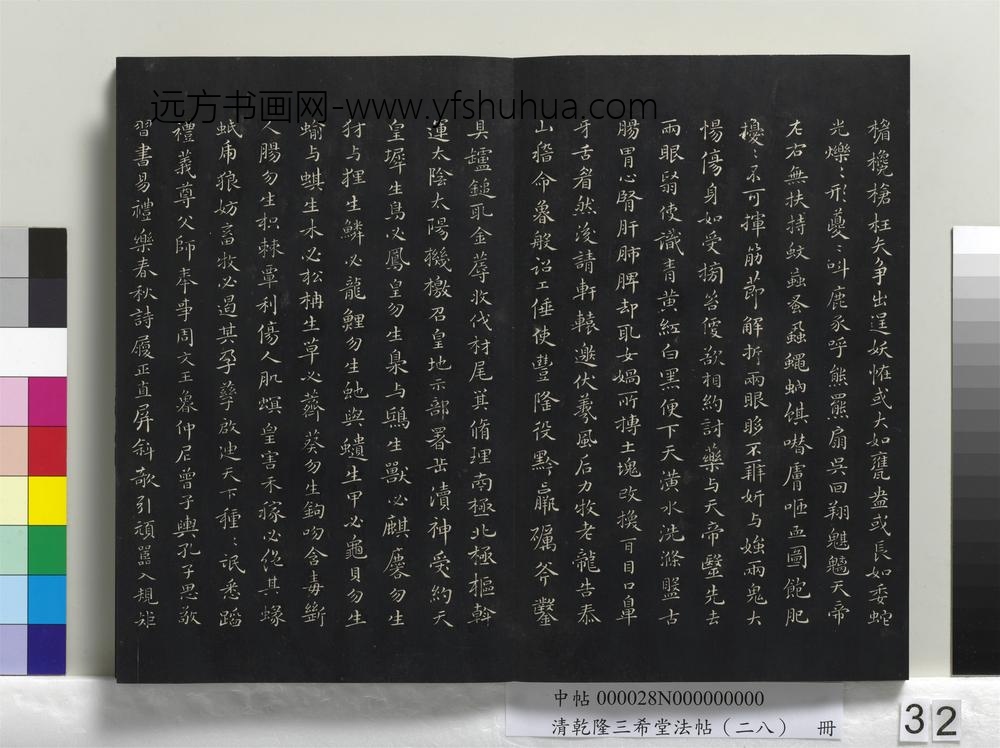 远方书画网-www.yfshuhua.com
欃槍枉矢争出逞妖恠或大如甕盎或長如委蛇
光爍〻形躨〻叫鹿豕呼熊羆扇吴回翔魃魖天帝
左右無扶持蚊蝱蚤蝨蠅蚋蜞噆膚咂血圖飽肥
擾〻不可揮筋節解折兩眼眵不辨妍与媸兩鬼大
惕傷身如受搒笞便欲相約討藥与天帝毉先去
兩眼翳使識青黄紅白黑便下天潢水洗滌盤古
腸胃心腎肝肺脾却取女媧所摶土塊改換耳目口鼻
牙舌眉然後請軒轅邀伏羲風后力牧老龍告泰
山稽命魯般詔工倕使豐隆役黔羸礪斧鑿
具鑪鎚取金蓐收伐材尾箕脩理南極北極樞斡
運太陰太陽機檄召皇地示部署岳瀆神受約天
皇墀生鳥必鳳皇勿生梟与鴟生獸必麒麐勿生
豺与狸生鱗必龍鯉勿生虵與鱑生甲必龜貝勿生
蝓与蜞生木必松柟生草必薺葵勿生鉤吻含毒斷
人腸勿生枳棘覃利傷人肌螟蝗害禾稼必絕其蝝
蚳虎狼妨畜牧必遏其孕孳啟迪天下種〻氓悉蹈
禮義尊父師奉事周文王魯仲尼曾子輿孔子思敬
習書易禮樂春秋詩履正直屏斜欹引頑嚚入規矩
中帖 000028N000000000
清乾隆三希堂法帖（二八） 冊
32